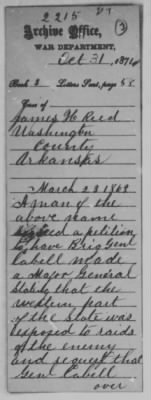 2215
(3)
Archive Office,
WAR DEPARTMENT,
Oct 31, 1874
Book 3 Letters Sent, page 58
Case of
James H Reed
Washington
County
Arkansas
March 23 1863
A man of the
above name
a petition
to have Brig Genl
Cabell made
a Major General
stating that the
western part
of the State was
exposed to raids
of the enemy
and request that
Genl Cabell
over